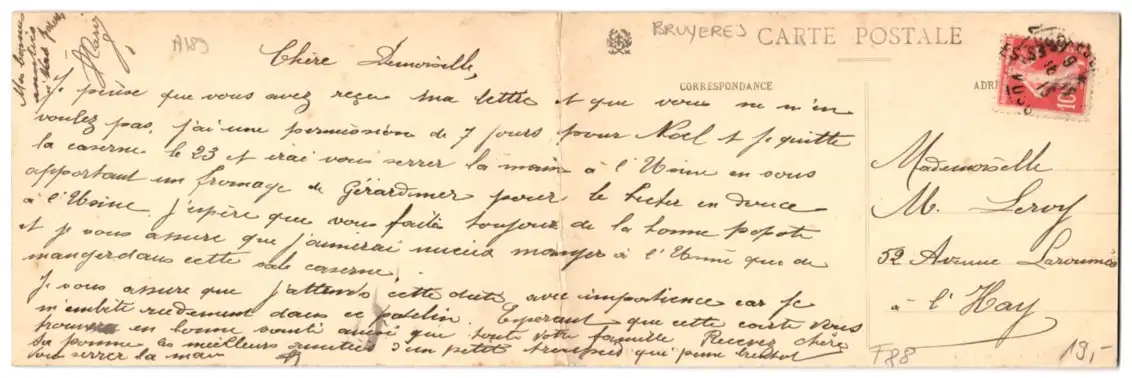 Mes bonnes
amitiés
à
Marie
A189
BRUYERES
CARTE POSTALE
CORRESPONDANCE
ADR
10
Chère Demoiselle,
Je pense que vous avez reçu ma lettre et que vous ne m'en
voulez pas, j'ai une permission de 7 jours pour Noel et je quitte
la caserne le 23 et irai vous serrer la main à l'Usine en vous
apportant un fromage de Gérardmer pour le en douce
à l'Usine. J'espère que vous faites toujours de la bonne popote
et je vous assure que j'aimerai mieux manger à l'Usine que de
manger dans cette sale caserne.
Je vous assure que j'attends cette date avec impatience car je
m'embête rudement dans ce patelin. Espérant que cette carte vous
trouvera en bonne santé ainsi que toute votre famille Recevez chère
les meilleurs amitiés d'un petit qui pense bientot
vous serrer la main
Mademoiselle
M. Leroy
52 Avenue Laroumès
à l'Hay
F88
19,-